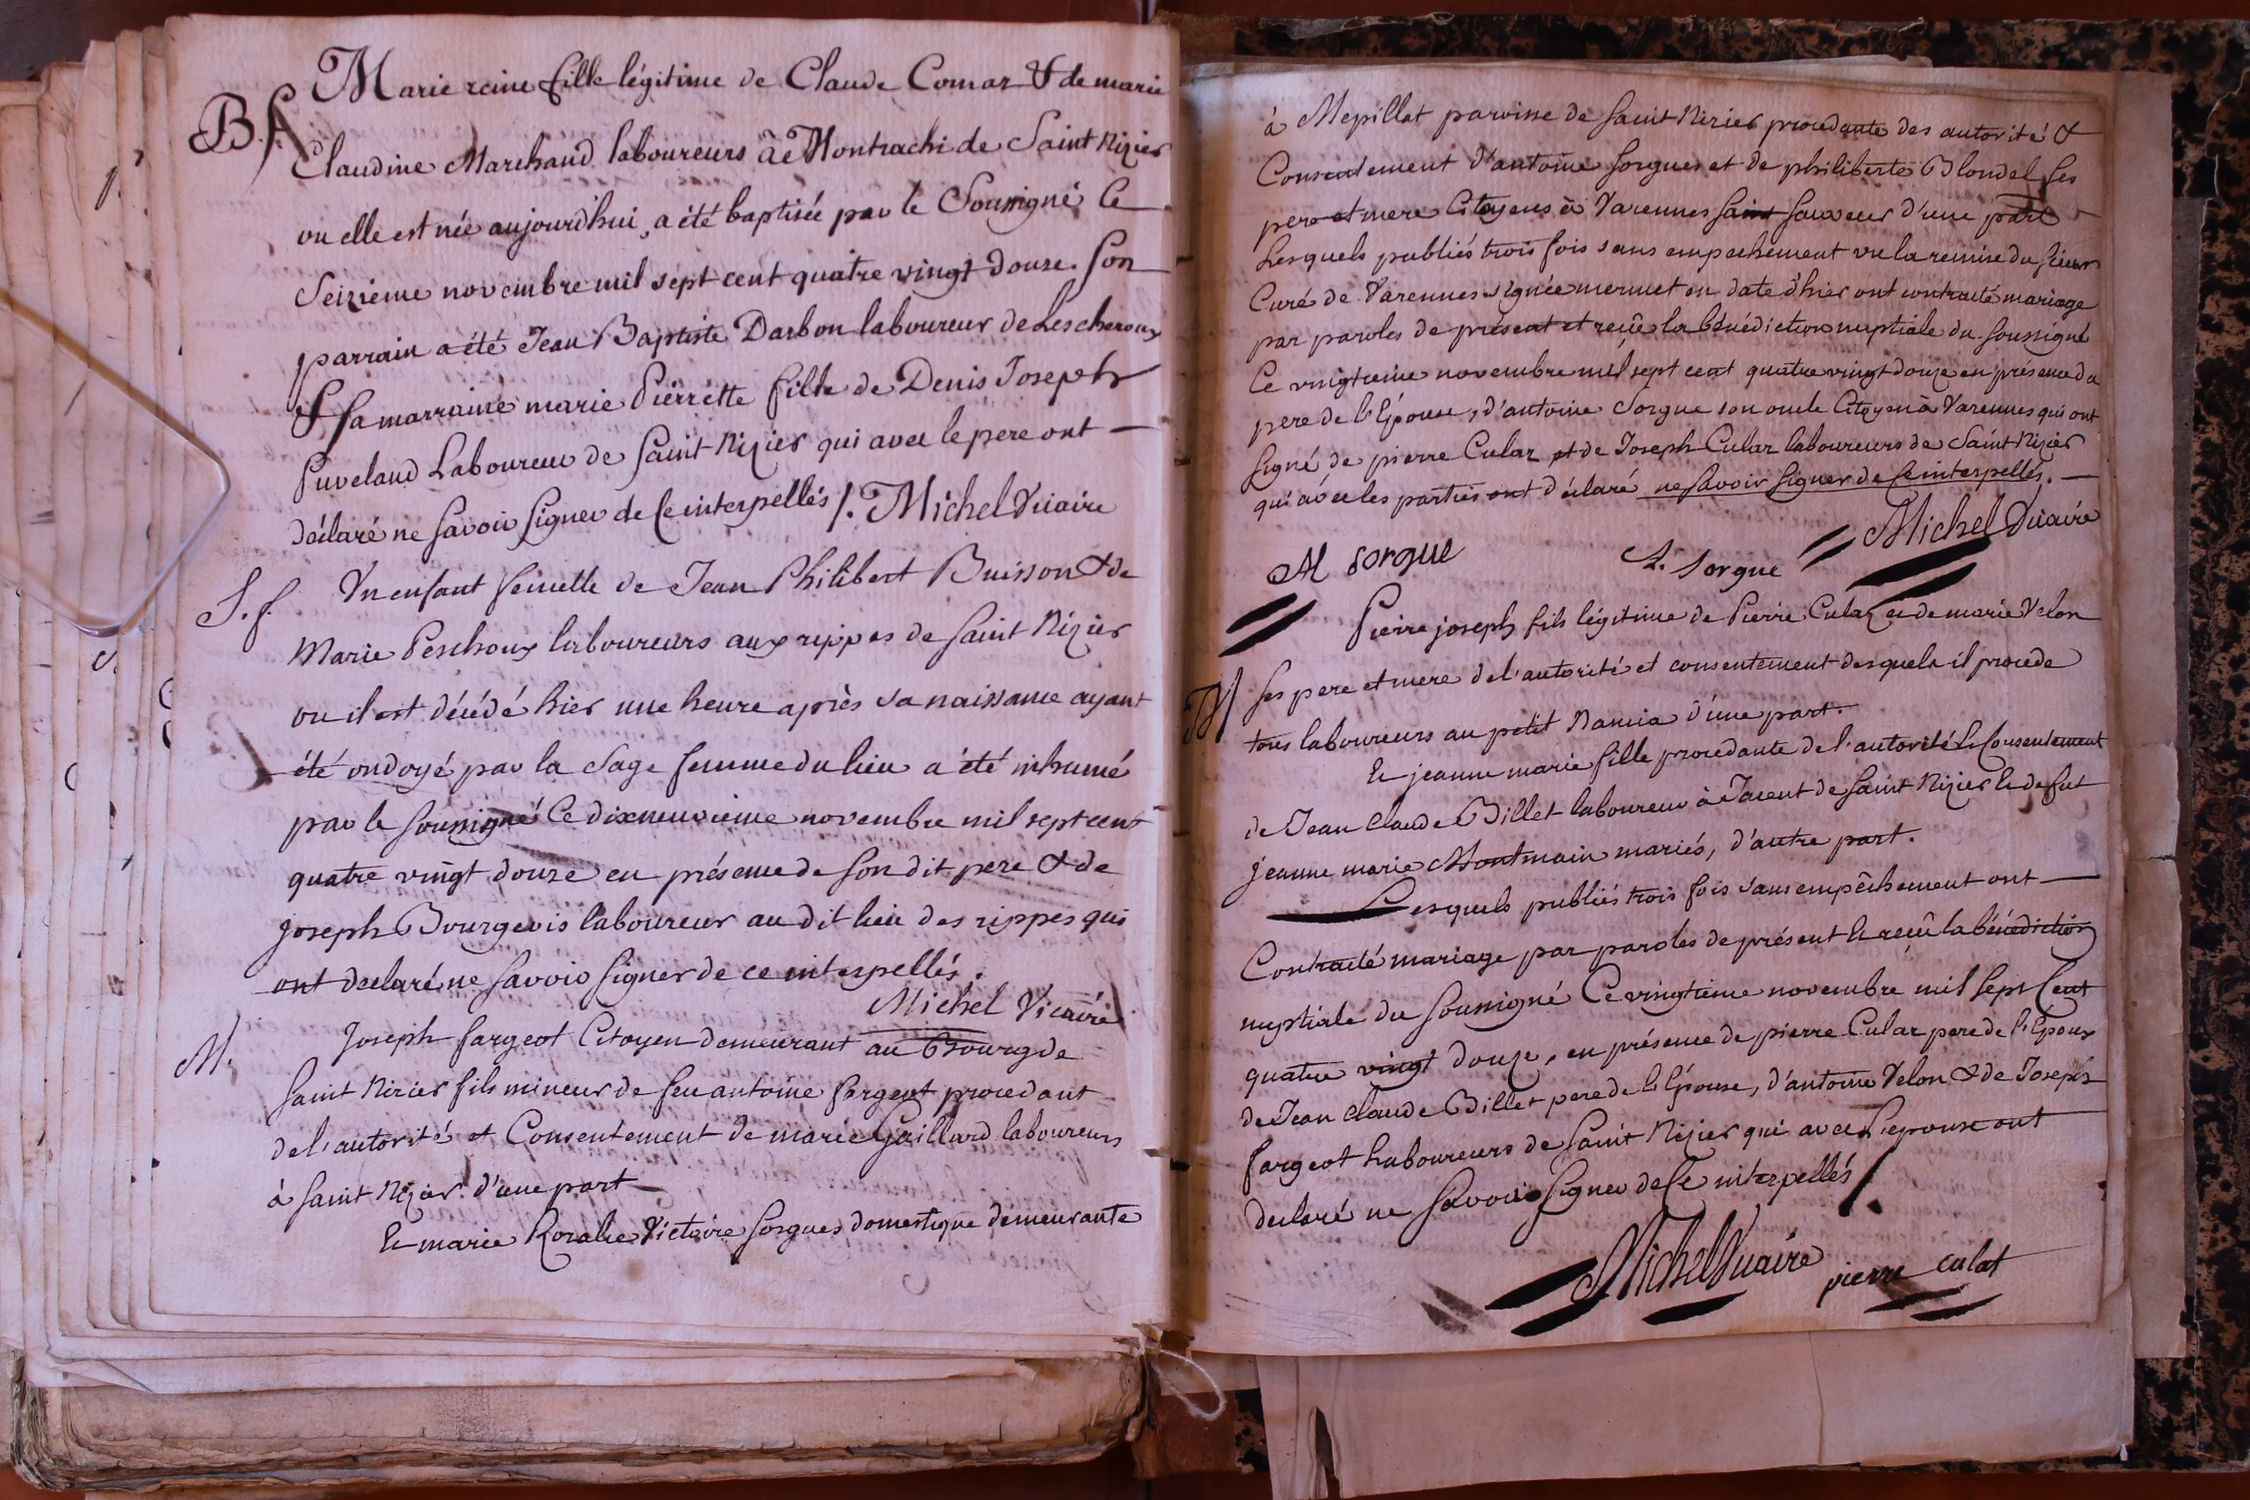 B. f.
Marie reine fille légitime de Claude Comar & de marie
Claudine Marchand laboureurs à Montrachi de Saint Nizier
ou elle est née aujourd'hui, a été baptisée par le Soussigné Ce
Seizieme novembre mil sept cent quatre vingt douze. Son
parrain a été Jean Baptiste Darbon laboureur de Lescheroux
& sa marraine marie Pierrette fille de Denis Joseph
Puveland Laboureur de Saint Nizier qui avec le pere ont
déclaré ne Savoir Signer de Ce interpellés /. Michel Vicaire
S. f.
Un enfant femelle de Jean Philibert Buisson & de
Marie Peschoux laboureurs aux rippes de Saint Nizier
ou il est décédé hier une heure après sa naissance ayant
été ondoyé par la Sage femme du lieu a été inhumé
par le soussigné Ce dixneuvieme novembre mil sept cent
quatre vingt douze en présence de son dit pere & de
joseph Bourgeois laboureur au dit lieu des rippes qui
ont declaré ne Savoir Signer de ce interpellés.
Michel Vicaire
M.
Joseph fargeot Citoyen demeurant au Bourg de
Saint Nizier fils mineur de feu antoine fargeot procedant
de l'autorité et Consentement de marie Gaillard laboureurs
à Saint Nizier d'une part
Et marie Rozalie Victoire Sorgues domestique demeurante
à Mepillat paroisse de Saint Nizier procedante des autorité &
Consentement d'antoine Sorgues et de philiberte Blondel Ses
pere et mere Citoyens à Varennes Saint Sauveur d'une part
Lesquels publiés trois fois sans empechement vu la remise du Sieur
Curé de Varennes signée mermet en date d'hier ont contracté mariage
par paroles de présent et reçu la bénédiction nuptiale du Soussigné
Ce vingtieme novembre mil sept cent quatre vingt douze en présence du
pere de l'Epouse, d'antoine Sorgue son oncle Citoyen à Varennes qui ont
Signé de pierre Cular et de Joseph Cular laboureurs de Saint Nizier
qui avec les parties ont déclaré ne Savoir Signer de Ce interpellés.
Michel Vicaire
M Sorgue A. Sorgue
Pierre joseph fils légitime de Pierre Cular et de marie Velon
M
Ses pere et mere de l'autorité et consentement desquels il procede
tous laboureurs au petit Namia d'une part.
Et jeanne marie fille procedante de l'autorité & Consentement
de Jean Claude Billet laboureur à Tarent de Saint Nizier & defut
jeanne marie Montmain mariés, d'autre part.
Lesquels publiés trois fois sans empêchement ont
Contracté mariage par paroles de présent & reçu la bénédiction
nuptiale du Soussigné Ce vingtieme novembre mil Sept Cent
quatre vingt douze, en présence de pierre Cular pere de l'Epoux
de Jean Claude Billet pere de l'Epouse, d'antoine Velon & de Joseph
fargeot Laboureurs de Saint Nizier qui avec l'epouse ont
declaré ne Savoir Signer de Ce interpellés /.
Michel Vicaire pierre culat